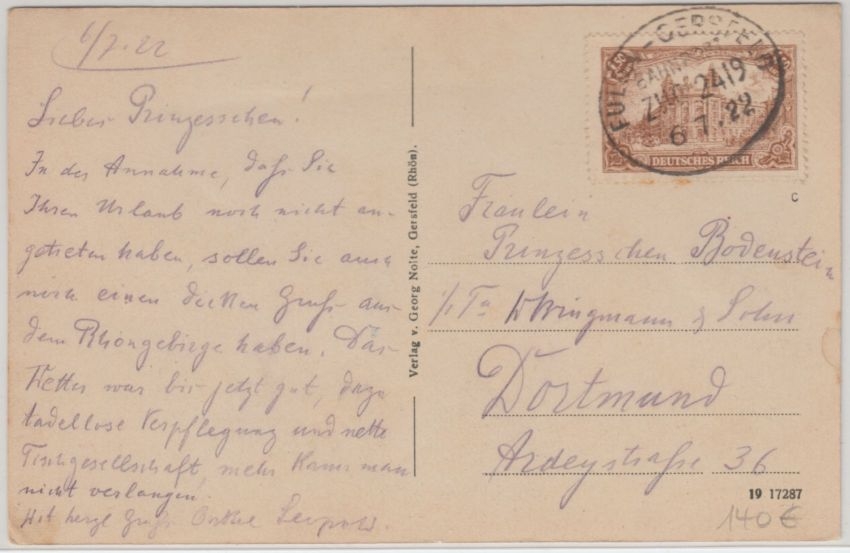 6/7.22
Liebes Prinzesschen!
In der Annahme, dass Sie
Ihren Urlaub noch nicht an-
getreten haben, sollen Sie auch
noch einen dicken Gruß aus
dem Rhöngebirge haben. Das
Wetter war bis jetzt gut, dazu
tadellose Verpflegung und nette
Tischgesellschaft, mehr kann man
nicht verlangen!
Mit herzl Gruß Leopold.
Verlag v. Georg Nolte, Gersfeld (Rhön).
FULDA-GERSFELD
BAHNPOST
ZUG 2419
6 7.22
DEUTSCHES REICH
C
Fräulein
Prinzesschen Bodenstein
Wringmann & Sohn
Dortmund
Ardeystraße 36
19 17287
140€